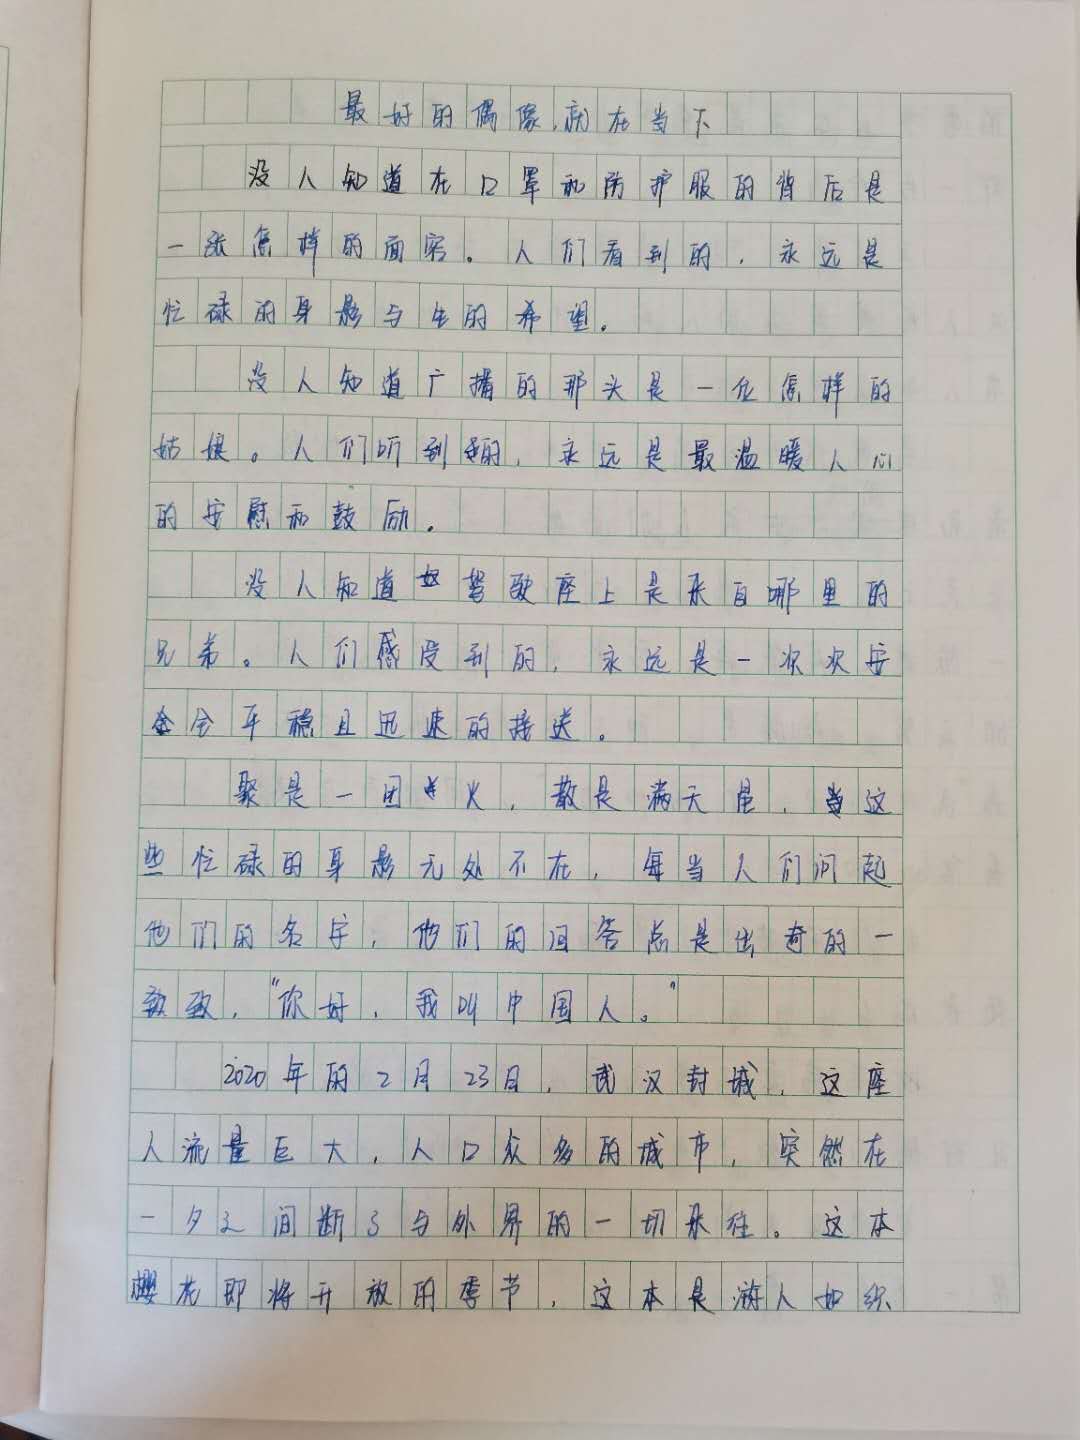 最好的偶像,就在当下
没人知道在口罩和防护服的背后是
一张怎样的面容。人们看到的,永远是
忙碌的身影与生的希望。
没人知道广播的那头是一位怎样的
姑娘。人们听到的,永远是最温暖人心
的安慰和鼓励。
没人知道驾驶座上是来自哪里的
兄弟。人们感受到的,永远是一次次安
全平稳且迅速的接送。
聚是一团火,散是满天星,当这
些忙碌的身影无处不在,每当人们问起
他们的名字,他们的回答总是出奇的一
致,“你好,我叫中国人。”
2020年的2月23日,武汉封城,这座
人流量巨大,人口众多的城市,突然在
一夕之间断了与外界的一切来往。这本
樱花即将开放的季节,这本是游人如织